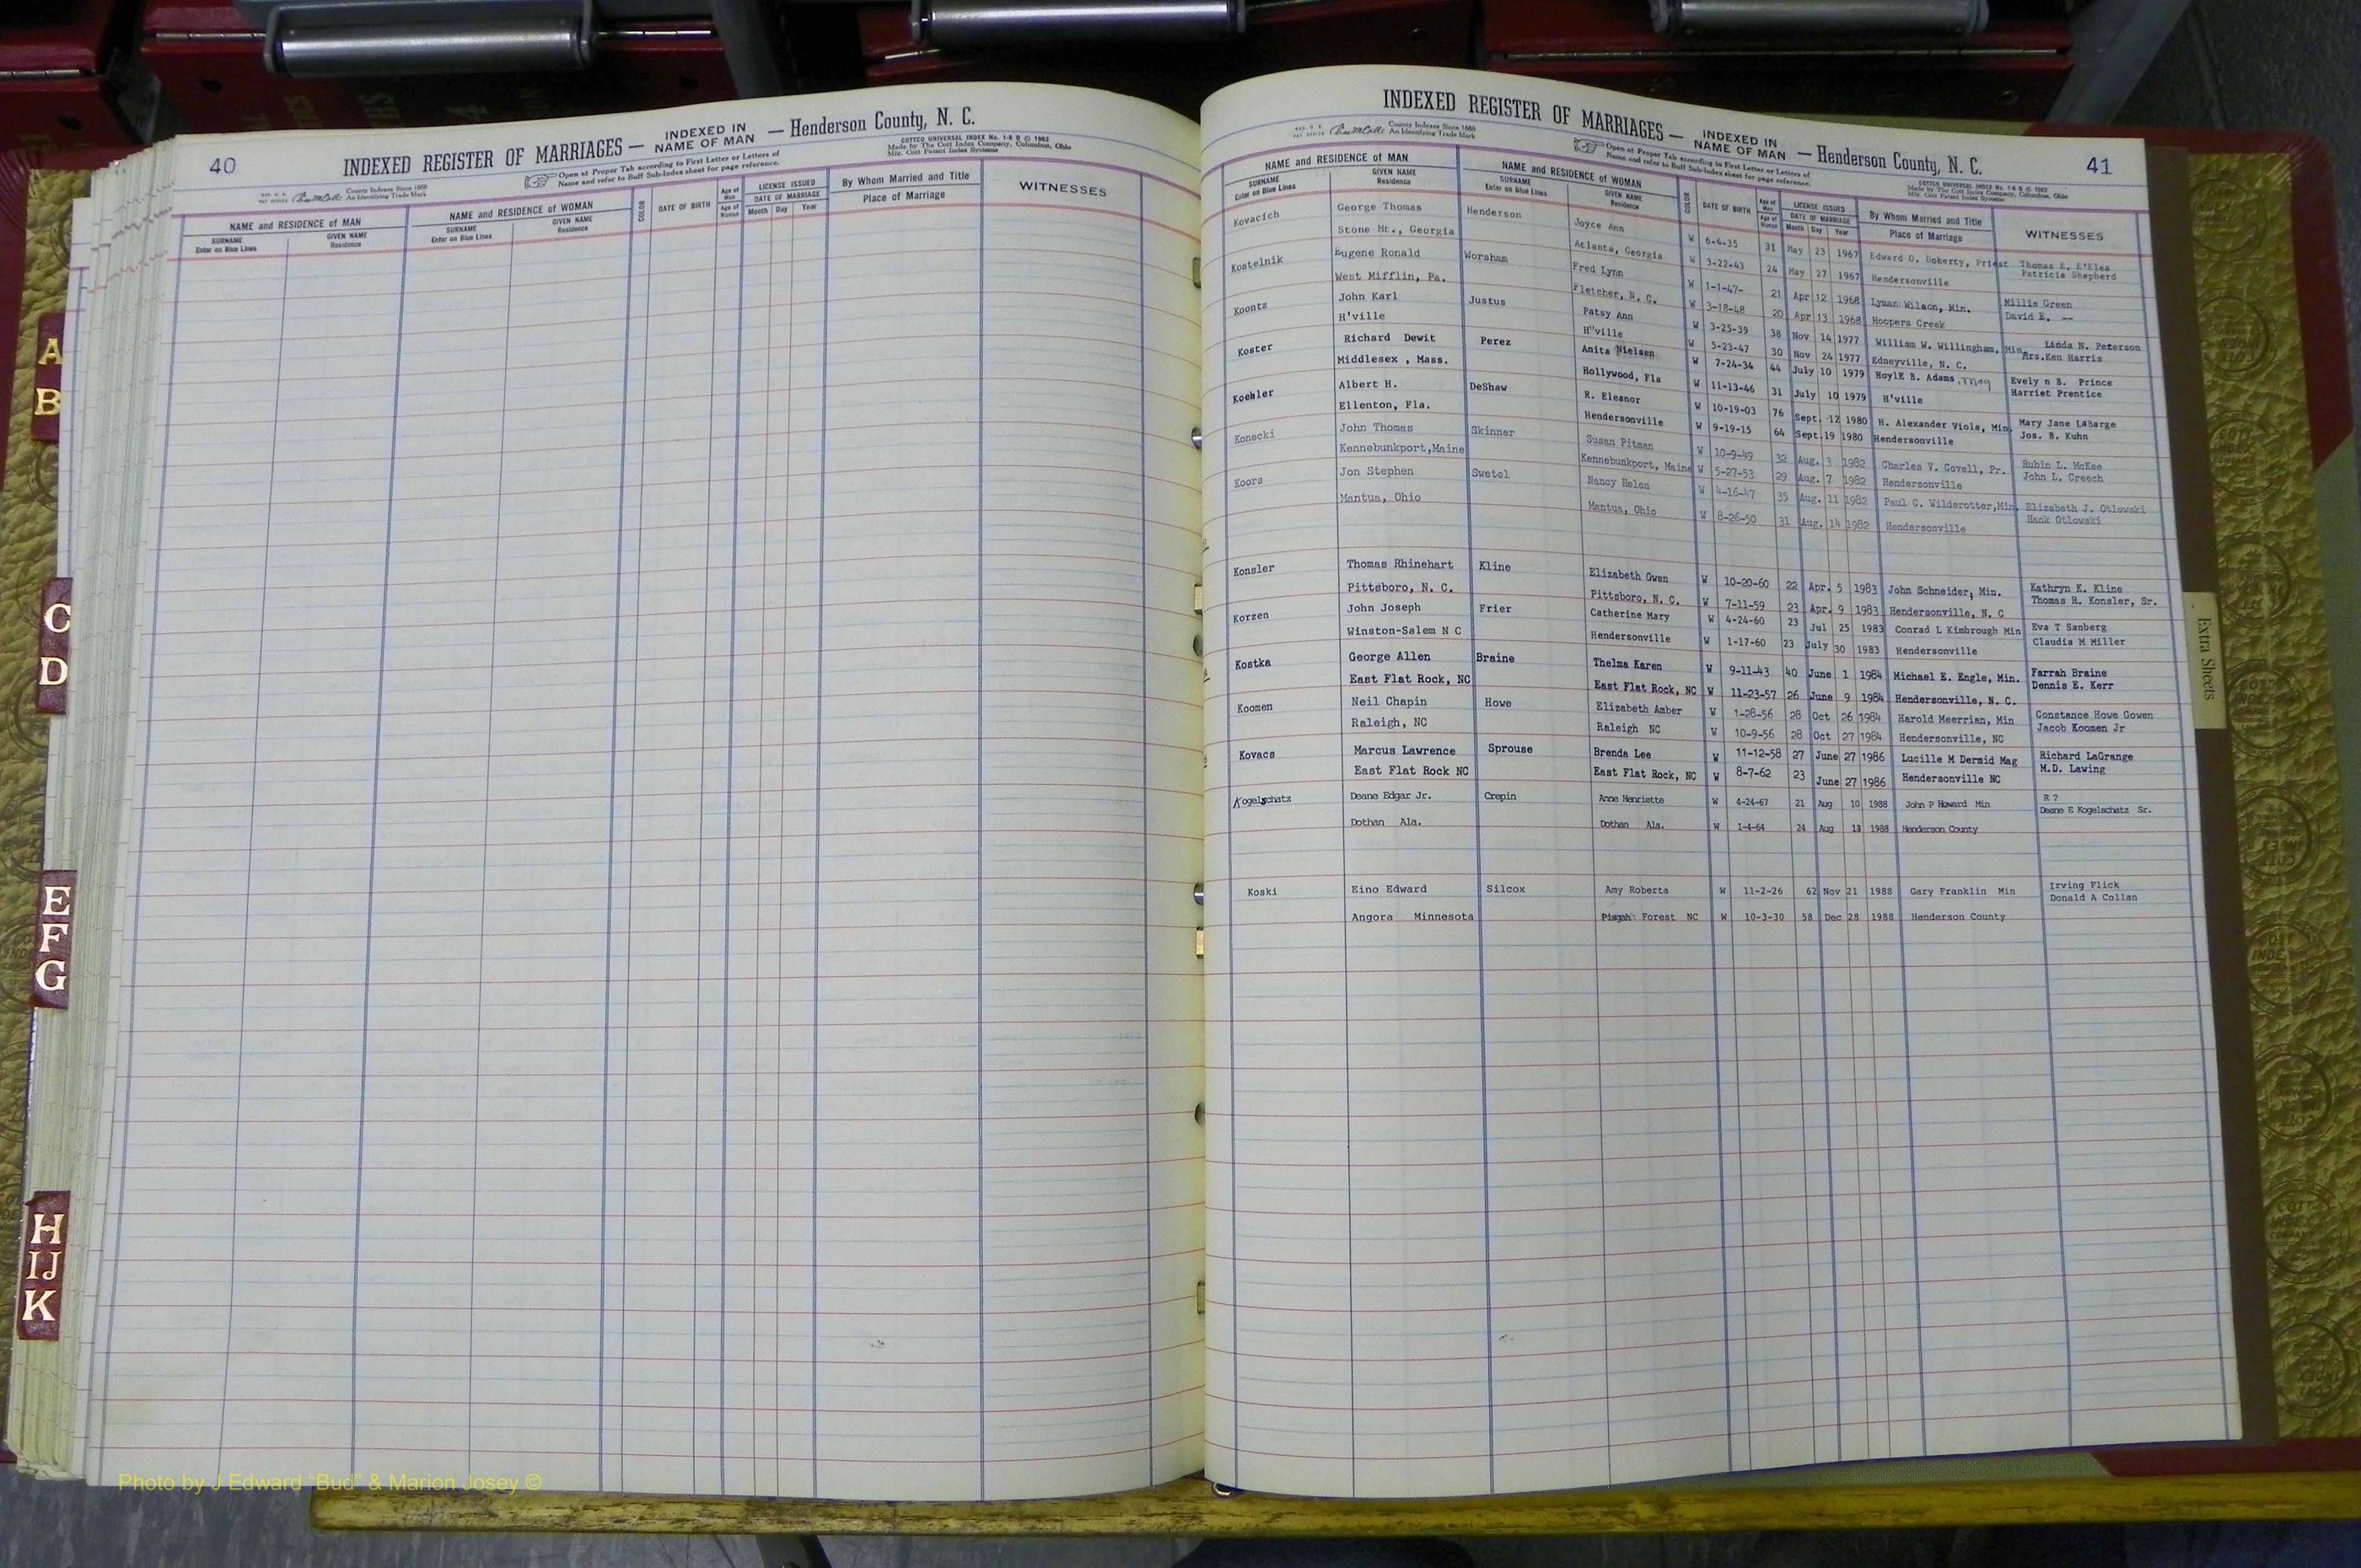 40
INDEXED REGISTER OF MARRIAGES — INDEXED IN NAME OF MAN — Henderson County, N. C.
Open at Proper Tab according to First Letter or Letters of
Name and refer to Buff Sub-Index sheet for page reference.
COTTCO UNIVERSAL INDEX No. 1-6 B © 1962
Made by The Cott Index Company, Columbus, Ohio
Mfg. Cott Patent Index Systems
County Indexes Since 1888
An Identifying Trade Mark
NAME and RESIDENCE of MAN
SURNAME
Enter on Blue Lines
GIVEN NAME
Residence
NAME and RESIDENCE of WOMAN
SURNAME
Enter on Blue Lines
GIVEN NAME
Residence
COLOR
DATE OF BIRTH
Age of Man
Age of Woman
LICENSE ISSUED
DATE OF MARRIAGE
Month Day Year
By Whom Married and Title
Place of Marriage
WITNESSES
A
B
C
D
E
F
G
H
IJ
K
INDEXED REGISTER OF MARRIAGES — INDEXED IN NAME OF MAN — Henderson County, N. C.
41
County Indexes Since 1888
An Identifying Trade Mark
Open at Proper Tab according to First Letter or Letters of
Name and refer to Buff Sub-Index sheet for page reference.
COTTCO UNIVERSAL INDEX No. 1-6 B © 1962
Made by The Cott Index Company, Columbus, Ohio
Mfg. Cott Patent Index Systems
NAME and RESIDENCE of MAN
SURNAME
Enter on Blue Lines
GIVEN NAME
Residence
NAME and RESIDENCE of WOMAN
SURNAME
Enter on Blue Lines
GIVEN NAME
Residence
COLOR
DATE OF BIRTH
Age of Man
Age of Woman
LICENSE ISSUED
DATE OF MARRIAGE
Month Day Year
By Whom Married and Title
Place of Marriage
WITNESSES
Kovacich George Thomas Henderson Joyce Ann W 6-4-35 31 May 23 1967 Edward O. Doherty, Priest Thomas E. E'Elea
Stone Mt., Georgia Atlanta, Georgia W 3-22-43 24 May 27 1967 Hendersonville Patricia Shepherd
Kostelnik Eugene Ronald Worsham Fred Lynn W 1-1-47- 21 Apr 12 1968 Lyman Wilson, Min. Millie Green
West Mifflin, Pa. Fletcher, N. C. W 3-18-48 20 Apr 13 1968 Hoopers Creek David E. --
Koontz John Karl Justus Patsy Ann W 3-25-39 38 Nov 14 1977 William W. Willingham, Min. Linda N. Peterson
H'ville H"ville W 5-23-47 30 Nov 24 1977 Edneyville, N. C. Mrs.Ken Harris
Koster Richard Dewit Perez Anita Nielsen W 7-24-34 44 July 10 1979 HoylE B. Adams, Mag Evely n B. Prince
Middlesex , Mass. Hollywood, Fla W 11-13-46 31 July 10 1979 H'ville Harriet Prentice
Koehler Albert H. DeShaw R. Eleanor W 10-19-03 76 Sept. 12 1980 H. Alexander Viola, Min. Mary Jane LaBarge
Ellenton, Fla. Hendersonville W 9-19-15 64 Sept.19 1980 Hendersonville Jos. B. Kuhn
Konecki John Thomas Skinner Susan Pitman W 10-9-49 32 Aug. 3 1982 Charles V. Covell, Pr. Rubin L. McKee
Kennebunkport,Maine Kennebunkport, Maine W 5-27-53 29 Aug. 7 1982 Hendersonville John L. Creech
Koors Jon Stephen Swetel Nancy Helen W 4-16-47 35 Aug. 11 1982 Paul C. Wilderotter,Min. Elizabeth J. Otlowski
Mantua, Ohio Mantua, Ohio W 8-26-50 31 Aug. 14 1982 Hendersonville Hank Otlowski
Konsler Thomas Rhinehart Kline Elizabeth Gwen W 10-20-60 22 Apr. 5 1983 John Schneider, Min. Kathryn K. Kline
Pittsboro, N. C. Pittsboro, N. C. W 7-11-59 23 Apr. 9 1983 Hendersonville, N. C Thomas R. Konsler, Sr.
Korzen John Joseph Frier Catherine Mary W 4-24-60 23 Jul 25 1983 Conrad L Kimbrough Min Eva T Sanberg
Winston-Salem N C Hendersonville W 1-17-60 23 July 30 1983 Hendersonville Claudia M Miller
Kostka George Allen Braine Thelma Karen W 9-11-43 40 June 1 1984 Michael E. Engle, Min. Farrah Braine
East Flat Rock, NC East Flat Rock, NC W 11-23-57 26 June 9 1984 Hendersonville, N. C. Dennis E. Kerr
Koomen Neil Chapin Howe Elizabeth Amber W 1-28-56 28 Oct 26 1984 Harold Meerrian, Min Constance Howe Gowen
Raleigh, NC Raleigh NC W 10-9-56 28 Oct 27 1984 Hendersonville, NC Jacob Koomen Jr
Kovacs Marcus Lawrence Sprouse Brenda Lee W 11-12-58 27 June 27 1986 Lucille M Dermid Mag Richard LaGrange
East Flat Rock NC East Flat Rock, NC W 8-7-62 23 June 27 1986 Hendersonville NC M.D. Lawing
Kogelschatz Deane Edgar Jr. Crepin Anne Henriette W 4-24-67 21 Aug 10 1988 John P Howard Min R ?
Dothan Ala. Dothan Ala. W 1-4-64 24 Aug 13 1988 Henderson County Deane E Kogelschatz Sr.
Koski Eino Edward Silcox Amy Roberta W 11-2-26 62 Nov 21 1988 Gary Franklin Min Irving Flick
Angora Minnesota Pisgah Forest NC W 10-3-30 58 Dec 28 1988 Henderson County Donald A Collan
Extra Sheets
Photo by J Edward “Bud” & Marion Josey ©